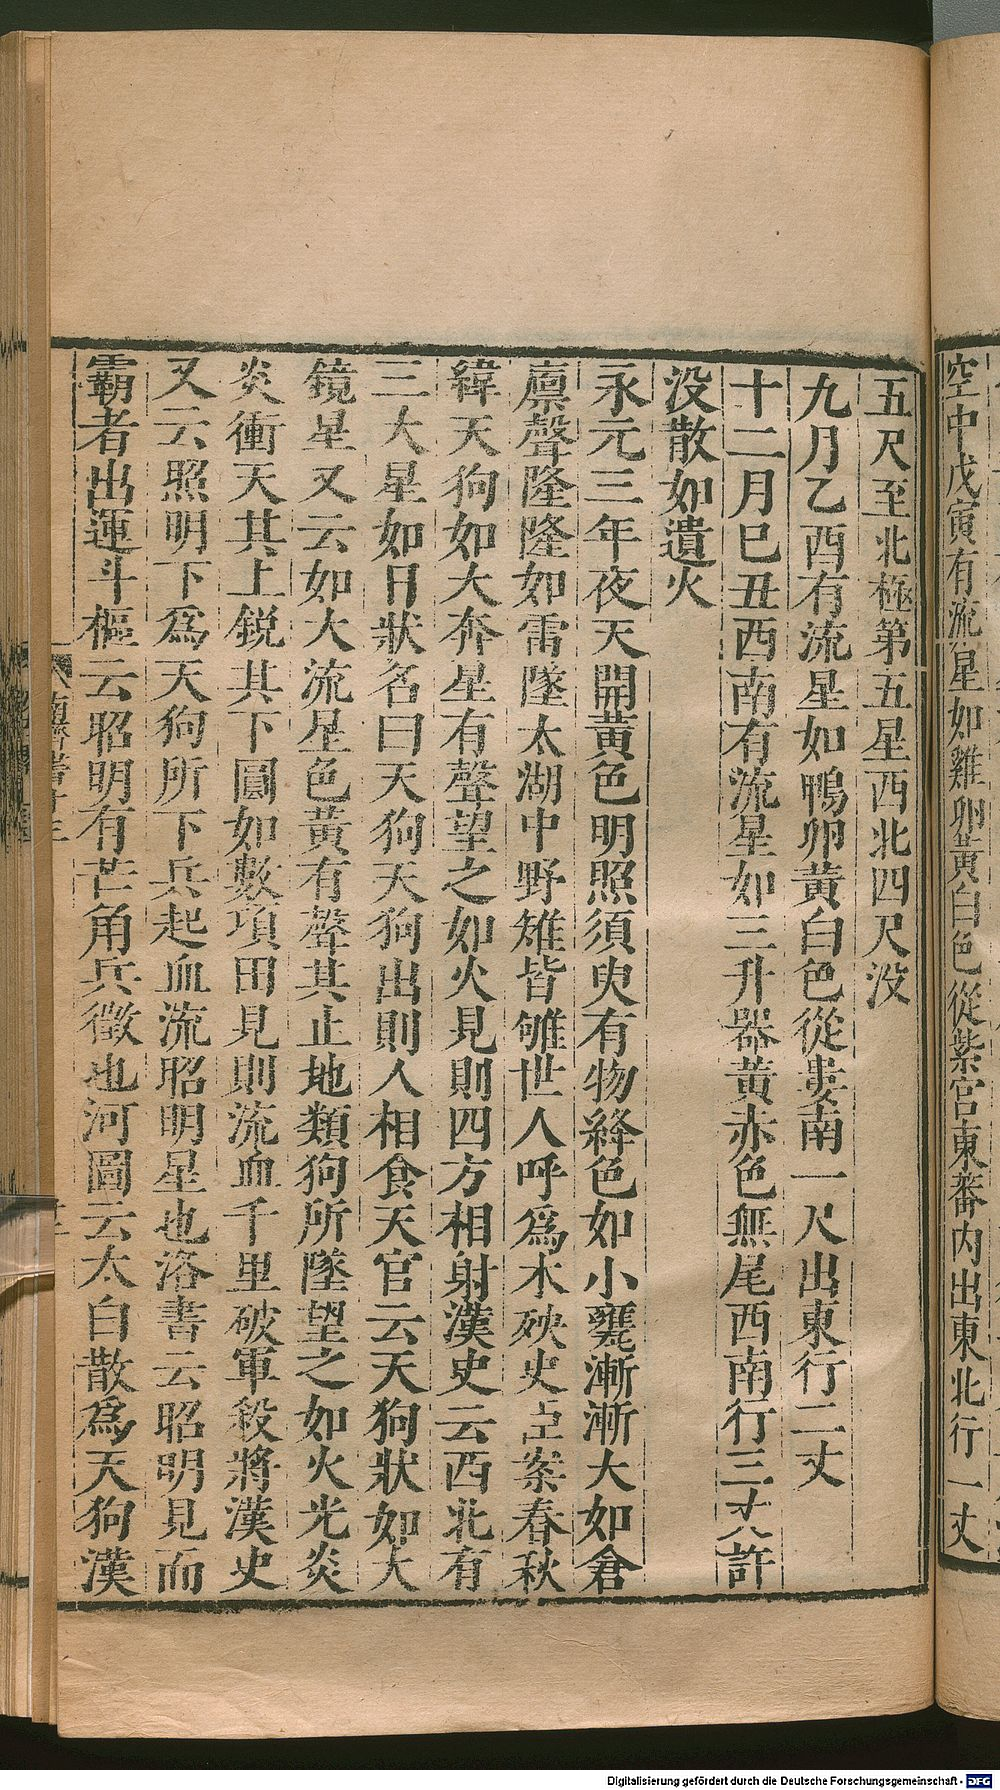 空中戊寅有流星如雞卵黃白色從紫宮東蕃內出東北行一丈
五尺至北極第五星西北四尺没
九月乙酉有流星如鴨卵黃白色從婁南一尺出東行二丈
十二月巳丑西南有流星如三升器黃赤色無尾西南行三丈許
没散如遺火
永元三年夜天開黃色明照須臾有物絳色如小甕漸漸大如倉
廪聲隆隆如雷墜太湖中野雉皆雊世人呼爲木殃史臣案春秋
緯天狗如大奔星有聲望之如火見則四方相射漢史云西北有
三大星如日狀名曰天狗天狗出則人相食天官云天狗狀如大
鏡星又云如大流星色黃有聲其止地類狗所墜望之如火光炎
炎衝天其上銳其下圓如數項田見則流血千里破軍殺將漢史
又云照明下爲天狗所下兵起血流昭明星也洛書云昭明見而
霸者出運斗樞云昭明有芒角兵徵也河圖云太白散爲天狗漢
Digitalisierung gefördert durch die Deutsche Forschungsgemeinschaft - DFG